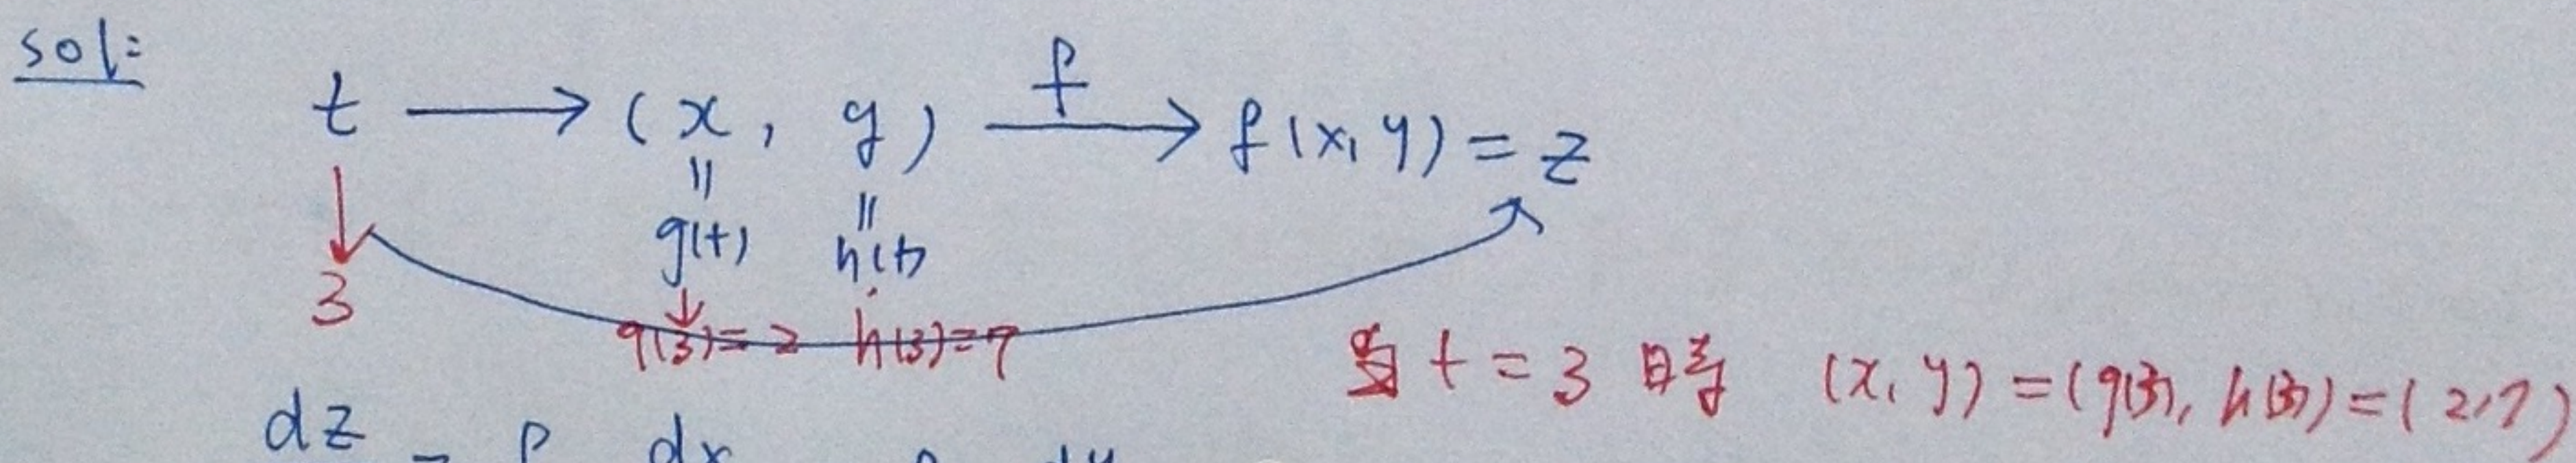 sol:
t ⟶ (x, y) ⟶ f f(x, y) = z
↓ || ||
g(t) h(t)
3 ↓
g(3)=2 h(3)=7
當 t = 3 時 (x, y) = (g(3), h(3)) = (2, 7)
dz dx